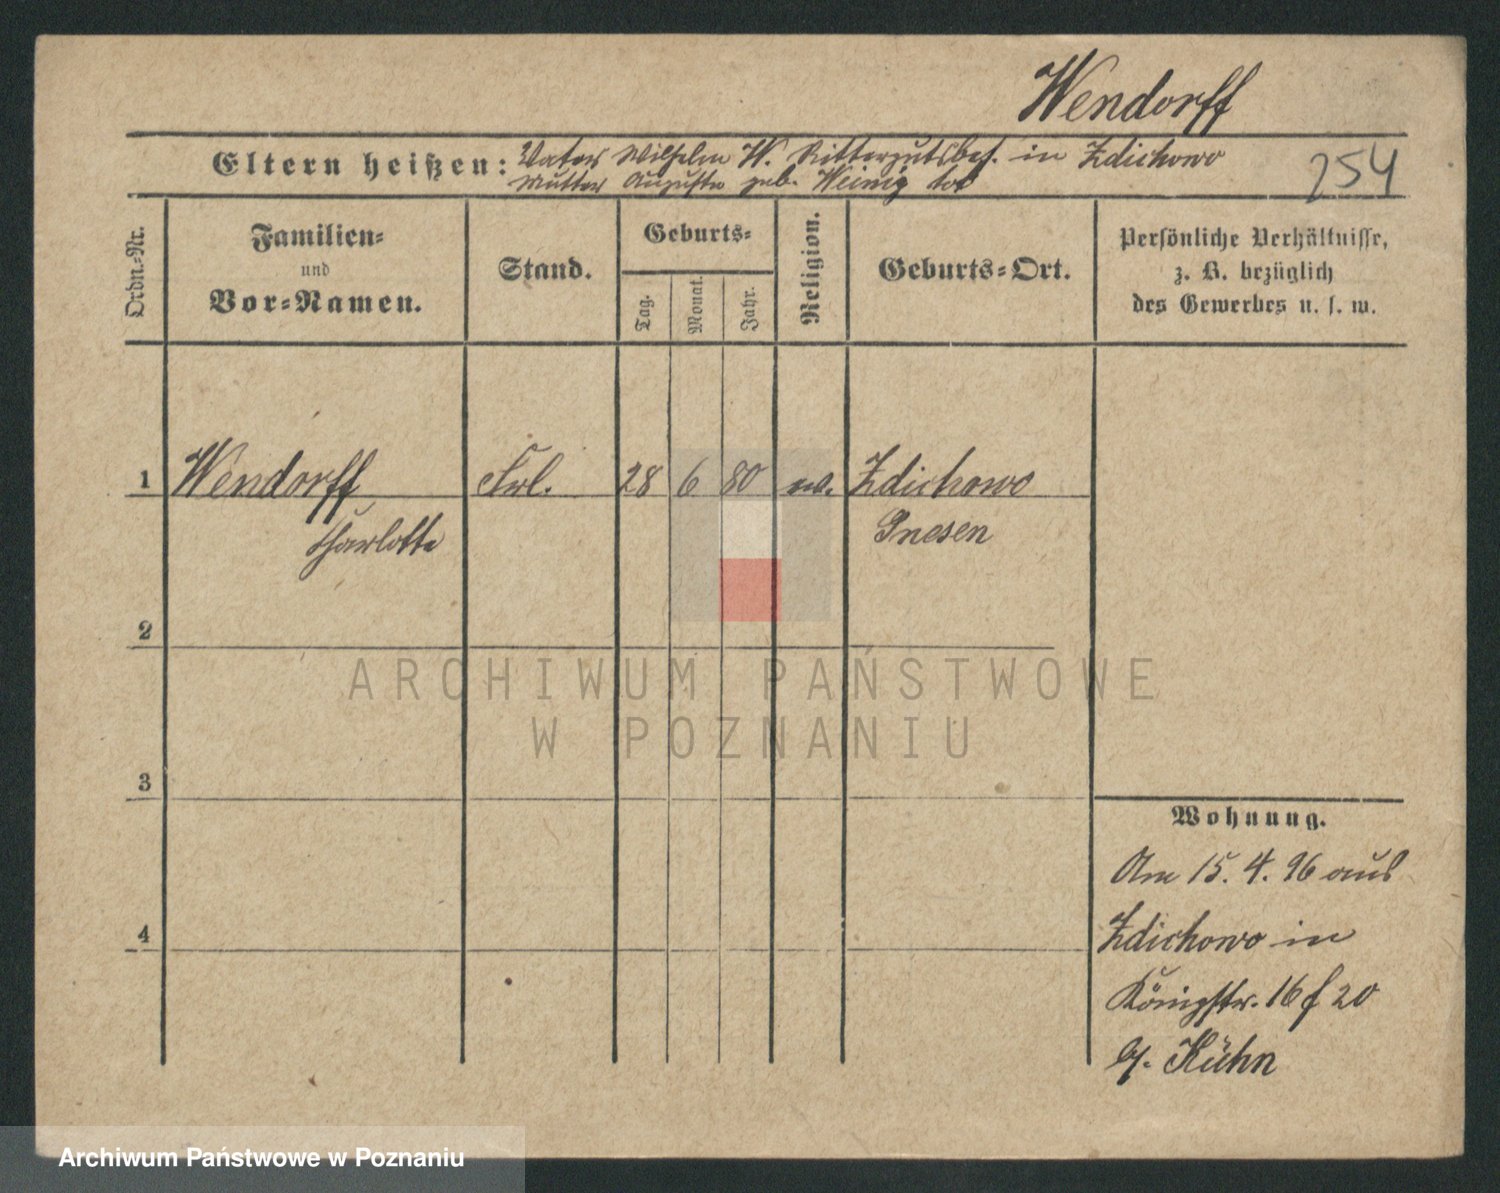 Wendorff
Eltern heißen: Vater Wilhelm W. Rittergutsbes. in Zdichowo
Mutter Auguste geb. Weinig tot
254
Ordn.-Nr.
Familien-
und
Vor-Namen.
Stand.
Geburts-
Tag.
Monat.
Jahr.
Religion.
Geburts-Ort.
Persönliche Verhältnisse,
z. B. bezüglich
des Gewerbes u. s. w.
1 Wendorff Frl. 28 6 80 ev. Zdichowo
Charlotte Gnesen
2
3
4
Wohnung.
Am 15. 4. 96 aus
Zdichowo in
Königstr. 16 f 20
b/. Kühn
ARCHIWUM PAŃSTWOWE
W POZNANIU
Archiwum Państwowe w Poznaniu